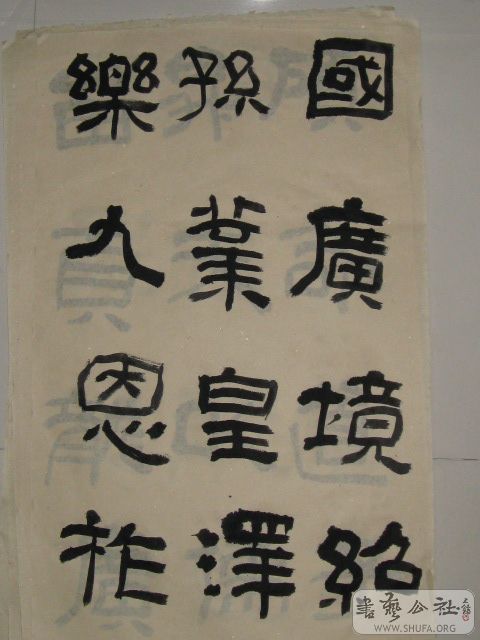 國廣境紹
孫業皇澤
樂九恩祚
書藝公社
WWW.SHUFA.ORG